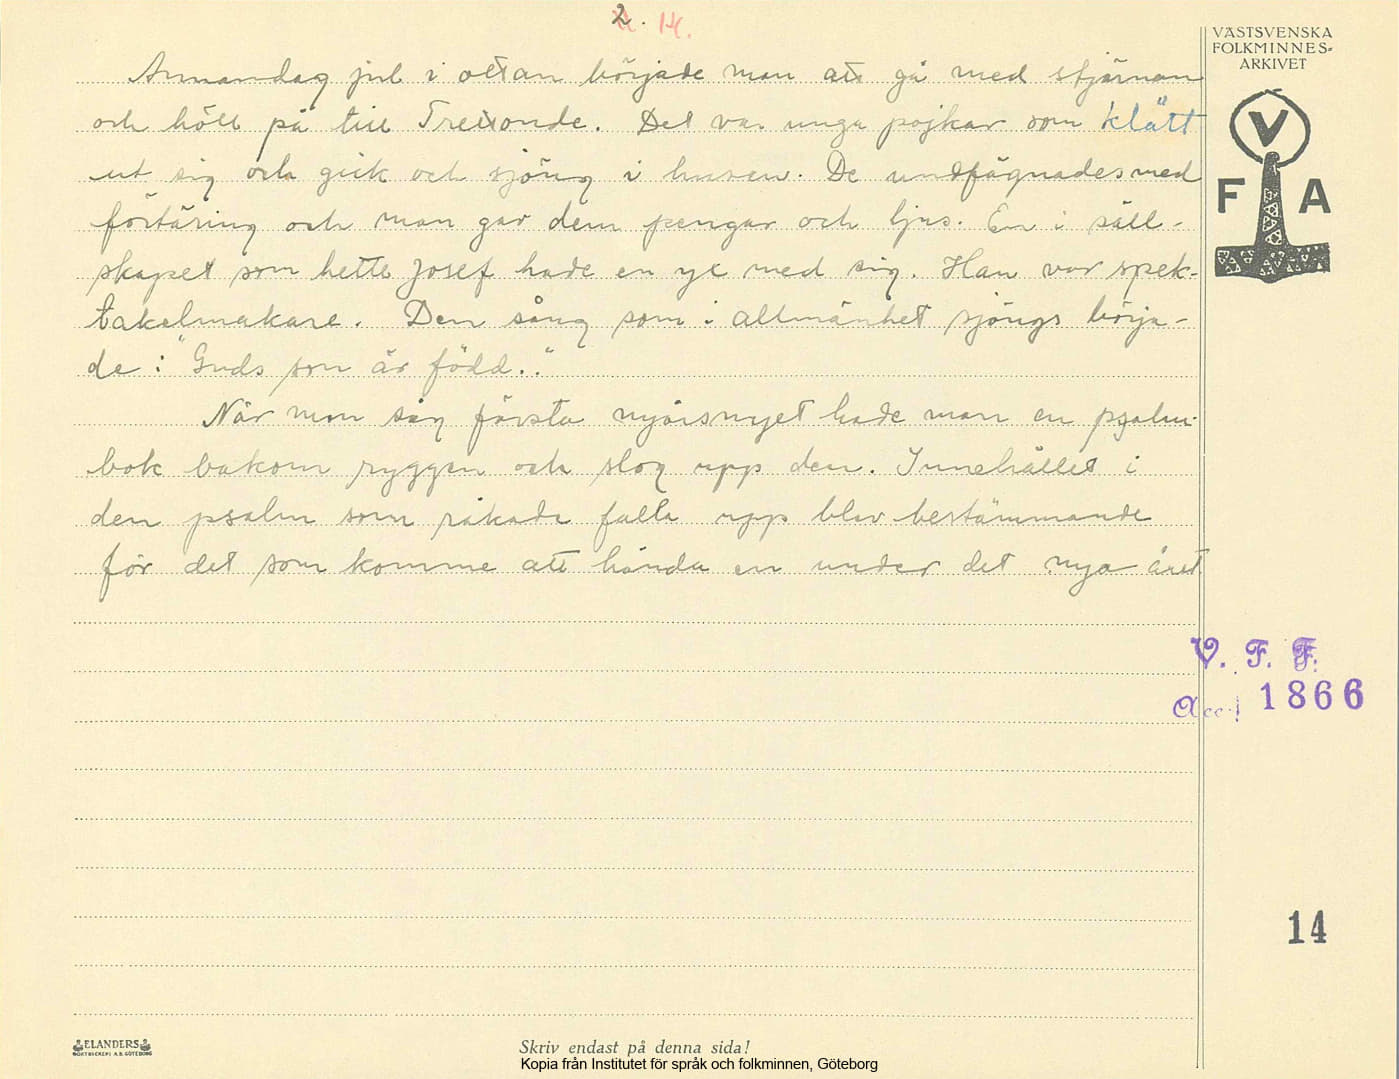 2. 14.
VÄSTSVENSKA
FOLKMINNES-
ARKIVET
Annandag jul i ottan började man att gå med stjärnan
och höll på till Trettonde. Det var unga pojkar som klätt
ut sig och gick och sjöng i husen. De undfägnades med
förtäring och man gav dem pengar och ljus. En i säll-
skapet som hette Josef hade en yx med sig. Han var spek-
takelmakare. Den sång som i allmänhet sjöngs börja-
de: "Guds son är född.."
När man såg första nyårsnyet hade man en psalm-
bok bakom ryggen och slog upp den. Innehållet i
den psalm som råkade falla upp blev bestämmande
för det som komme att hända en under det nya året
V
F A
V. F. F.
Acc. 1866
14
ELANDERS
BOKTRYCKERI A.B. GÖTEBORG
Skriv endast på denna sida!
Kopia från Institutet för språk och folkminnen, Göteborg